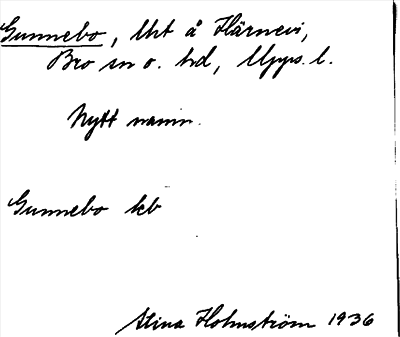 Gunnebo, lht å Härnevi,
Bro sn o. hd, Upps. l.
Nytt namn.
Gunnebo kb
Stina Holmström 1936